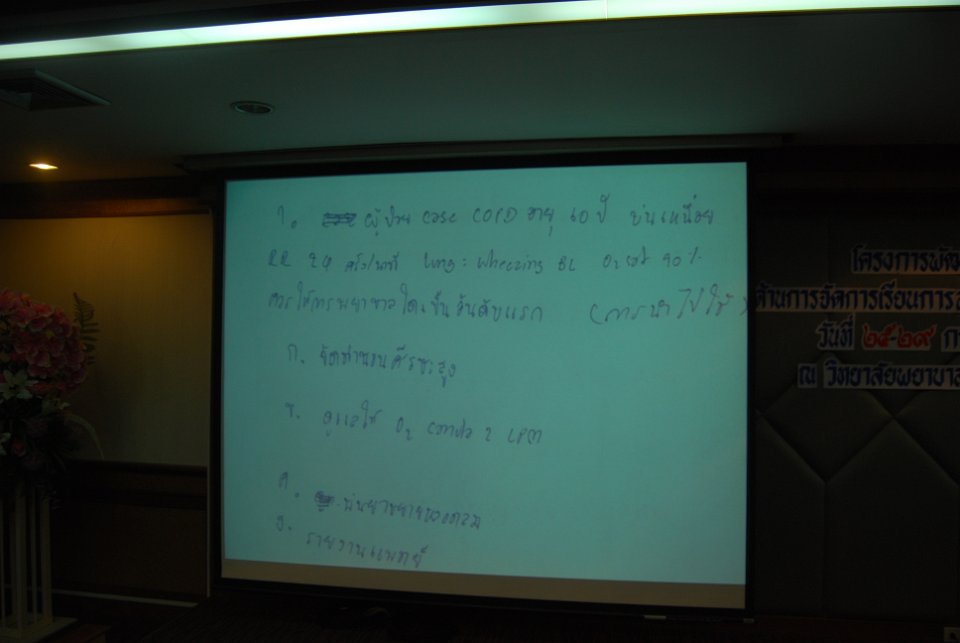 1. ผู้ป่วย case COPD อายุ 60 ปี บ่นเหนื่อย
RR 24 ครั้ง/นาที lung: wheezing BL O2 sat 90 %
ควรให้การพยาบาลใดเป็นอันดับแรก (การนำไปใช้
ก. จัดท่านอนศีรษะสูง
ข. ดูแลให้ O2 canula 2 LPM
ค. พ่นยาขยายหลอดลม
ง. รายงานแพทย์
โครงการพัฒ
ด้านการจัดการเรียนการส
วันที่ ๒๕-๒๙ ก
ณ วิทยาลัยพยาบาล